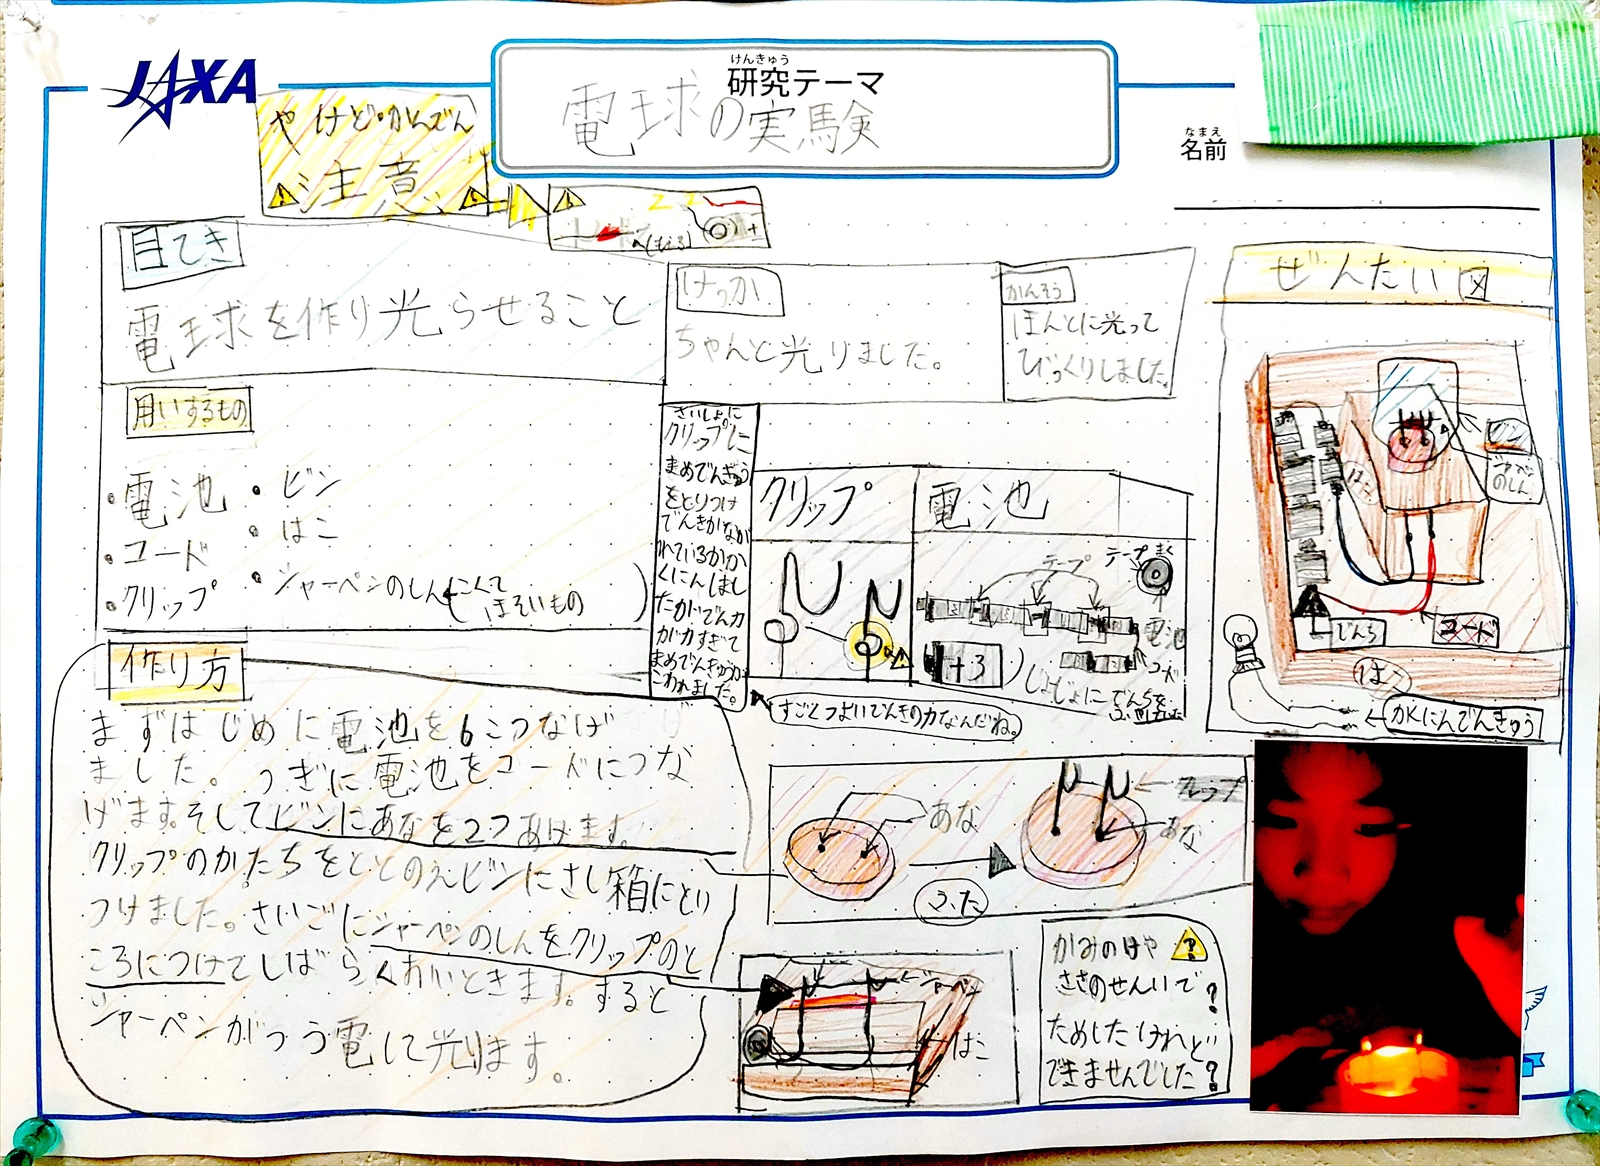 JAXA
けんきゅう
研究テーマ
電球の実験
なまえ
名前
やけど・かんでん
注意
目てき
電球を作り光らせること
用いするもの
・電池
・コード
・クリップ
・ビン
・はこ
・シャーペンのしん(こくて
ほそいもの)
けっか
ちゃんと光りました。
かんそう
ほんとに光って
びっくりしました。
さいしょに
クリップに
まめでんきゅう
をとりつけ
でんきがなが
れているかか
くにんしまし
たがでん力
が力すぎて
まめでんきゅうが
こわれました。
すごくつよいでんきの力なんだね。
クリップ
電池
テープ
テープまく
電池
じょじょに
作り方
まずはじめに電池を6こつなげ
ました。つぎに電池をコードにつな
げます。そしてビンにあなを2つあけます。
クリップのかたちをととのえビンにさし箱にとり
つけました。さいごにシャーペンのしんをクリップのと
ころにつけてしばらくおいときます。すると
シャーペンがつう電して光ります。
あな
ふた
クリップ
あな
シャーペン
はこ
かみのけや
ささのせんいで
ためしたけれど
できませんでした?
ぜんたい図
ビン
はこ
でんち
コード
はこ
かくにんでんきゅう